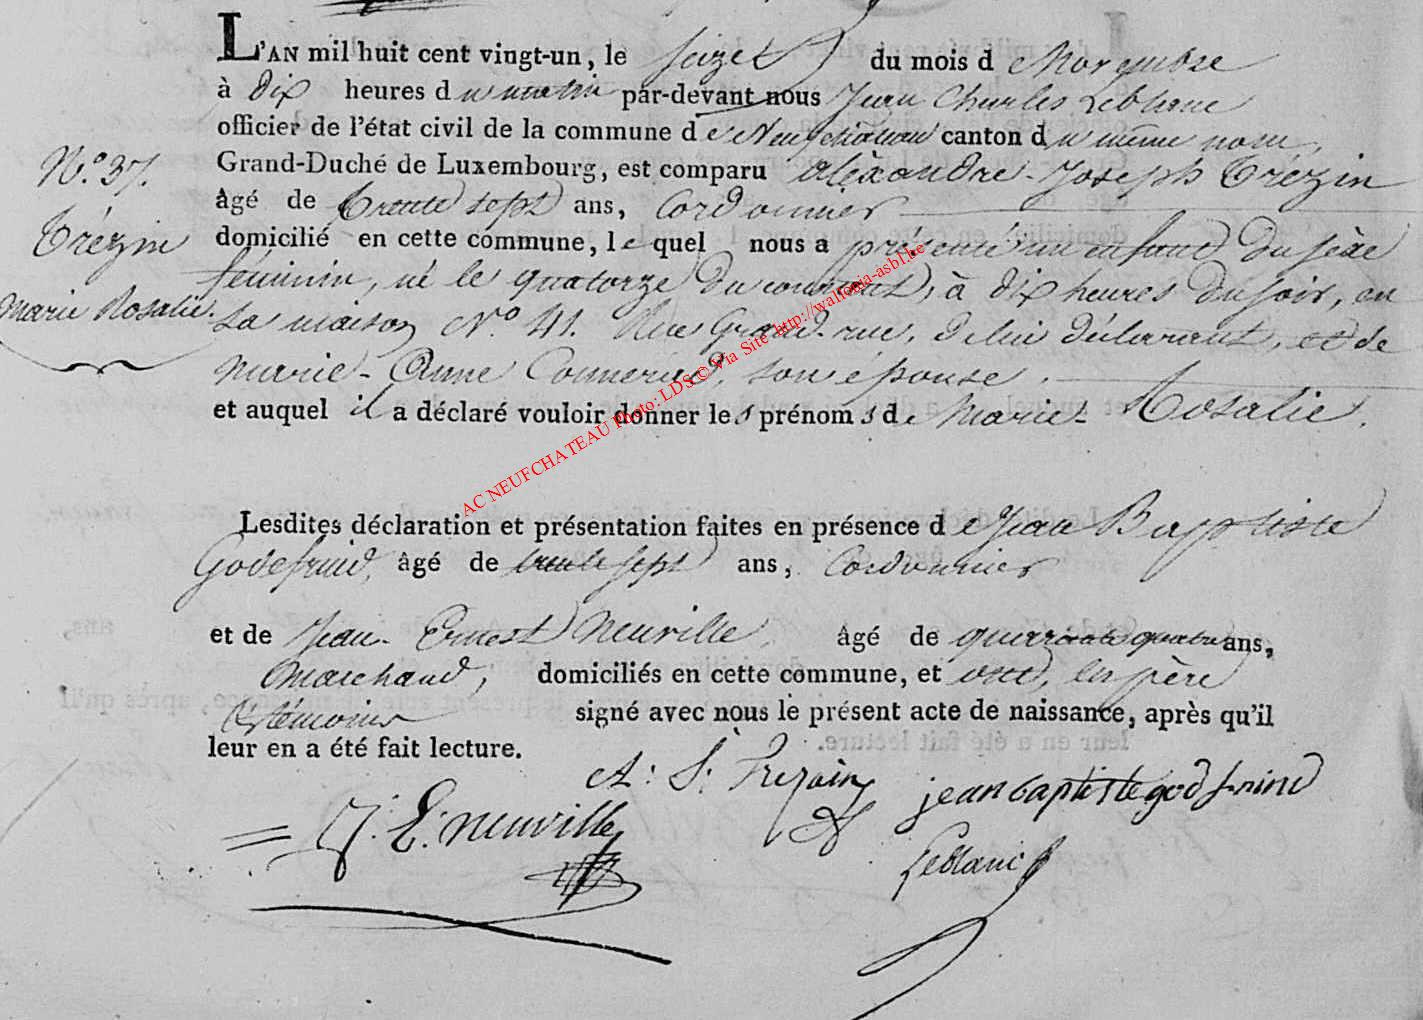 L'AN mil huit cent vingt-un, le seize du mois de Novembre
à dix heures du matin par-devant nous Jean Charles Leblanc
officier de l'état civil de la commune de Neufchateau canton du même nom,
Grand-Duché de Luxembourg, est comparu Aléxandre-Joseph Trézin
âgé de trente sept ans, Cordonnier
domicilié en cette commune, lequel nous a présenté un enfant du sèxe
féminin, né le quatorze du courant, à dix heures du soir, en
sa maison N.º 41. Rue Grand-rue, de lui déclarant, et de
Marie-Anne son épouse.
et auquel il a déclaré vouloir donner les prénoms de Marie-Rosalie.
N.º 37.
Trézin
Marie Rosalie.
Lesdites déclaration et présentation faites en présence de Jean Baptiste
Godefruid, âgé de trente sept ans, Cordonnier
et de Jean-Ernest Neuville, âgé de quarante quatre ans,
Marchand, domiciliés en cette commune, et ont, les père
& témoins signé avec nous le présent acte de naissance, après qu'il
leur en a été fait lecture.
A: J: Trezain
jean baptiste godfrind
J: E: neuville
Leblanc
AC NEUFCHATEAU Photo: LDS © Via Site http://wallonia-asbl.be